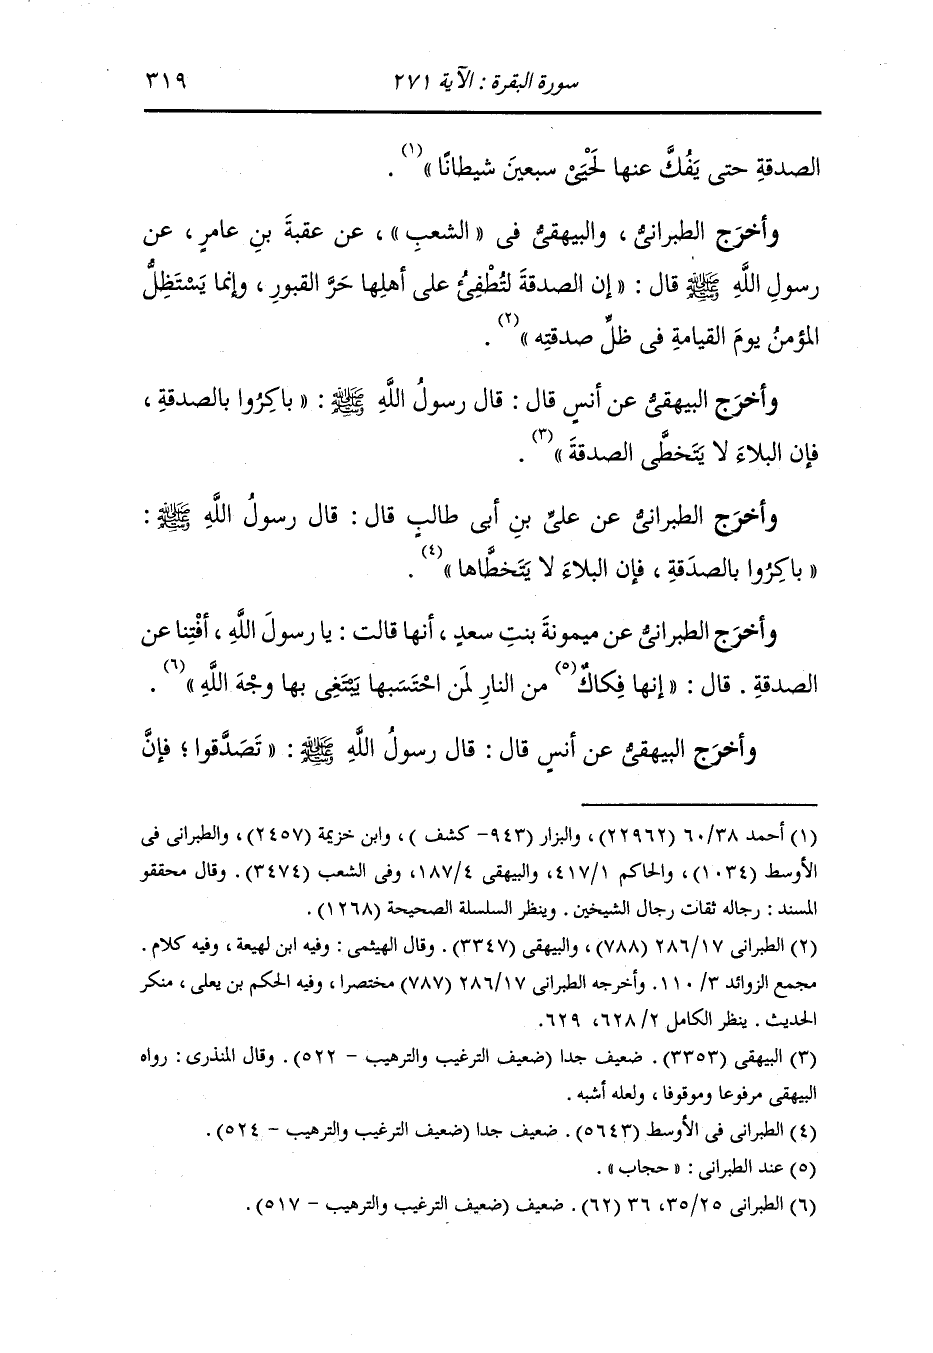 سورة البقرة : الآية ٢٧١ ٣١٩
الصدقةِ حتى يَفُكَّ عنها لَحْيَىْ سبعينَ شيطانًا »(١) .
وأخرَج الطبرانىُّ ، والبيهقىُّ فى « الشعبِ » ، عن عقبةَ بنِ عامرٍ ، عن
رسولِ اللَّهِ ﷺ قال : « إن الصدقةَ لتُطْفِئُ على أهلِها حَرَّ القبورِ ، وإنما يَسْتَظِلُّ
المؤمنُ يومَ القيامةِ فى ظلِّ صدقتِه »(٢) .
وأخرَج البيهقىُّ عن أنسٍ قال : قال رسولُ اللَّهِ ﷺ : « باكِرُوا بالصدقةِ ،
فإن البلاءَ لا يَتَخطَّى الصدقةَ »(٣) .
وأخرَج الطبرانىُّ عن علىِّ بنِ أبى طالبٍ قال : قال رسولُ اللَّهِ ﷺ :
« باكِرُوا بالصدَقةِ ، فإن البلاءَ لا يَتَخطَّاها »(٤) .
وأخرَج الطبرانىُّ عن ميمونةَ بنتِ سعدٍ ، أنها قالت : يا رسولَ اللَّهِ ، أفْتِنا عن
الصدقةِ . قال : « إنها فِكاكٌ(٥) من النارِ لمَن احْتَسَبها يَبْتَغِى بها وجْهَ اللَّهِ »(٦) .
وأخرَج البيهقىُّ عن أنسٍ قال : قال رسولُ اللَّهِ ﷺ : « تَصَدَّقوا ؛ فإنَّ
(١) أحمد ٦٠/٣٨ (٢٢٩٦٢) ، والبزار (٩٤٣- كشف ) ، وابن خزيمة (٢٤٥٧) ، والطبرانى فى
الأوسط (١٠٣٤) ، والحاكم ٤١٧/١، والبيهقى ١٨٧/٤، وفى الشعب (٣٤٧٤) . وقال محققو
المسند : رجاله ثقات رجال الشيخين . وينظر السلسلة الصحيحة (١٢٦٨) .
(٢) الطبرانى ٢٨٦/١٧ (٧٨٨) ، والبيهقى (٣٣٤٧) . وقال الهيثمى : وفيه ابن لهيعة ، وفيه كلام .
مجمع الزوائد ٣/ ١١٠. وأخرجه الطبرانى ٢٨٦/١٧ (٧٨٧) مختصرا ، وفيه الحكم بن يعلى ، منكر
الحديث . ينظر الكامل ٢/ ٦٢٨، ٦٢٩.
(٣) البيهقى (٣٣٥٣) . ضعيف جدا (ضعيف الترغيب والترهيب – ٥٢٢) . وقال المنذرى : رواه
البيهقى مرفوعا وموقوفا ، ولعله أشبه .
(٤) الطبرانى فى الأوسط (٥٦٤٣) . ضعيف جدا (ضعيف الترغيب والترهيب – ٥٢٤) .
(٥) عند الطبرانى : « حجاب » .
(٦) الطبرانى ٣٥/٢٥، ٣٦ (٦٢) . ضعيف (ضعيف الترغيب والترهيب – ٥١٧) .